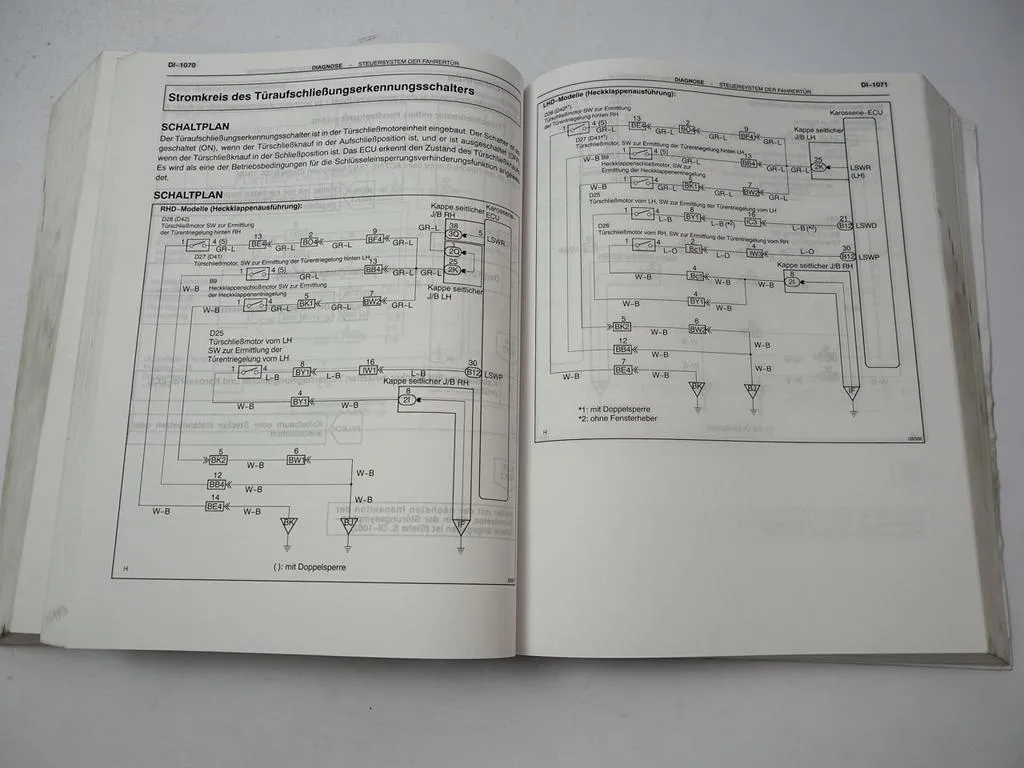 DI-1070
DIAGNOSE - STEUERSYSTEM DER FAHRERTÜR
Stromkreis des Türaufschließungserkennungsschalters
SCHALTPLAN
Der Türaufschließungserkennungsschalter ist in der Türschließmotoreinheit eingebaut. Der Schalter ist
geschaltet (ON), wenn der Türschließknauf in der Aufschließposition ist, und er ist ausgeschaltet (OFF),
wenn der Türschließknauf in der Schließposition ist. Das ECU erkennt den Zustand des Türschließknaufs.
Es wird als eine der Betriebsbedingungen für die Schlüsseleinsperrungsverhinderungsfunktion
det.
SCHALTPLAN
RHD-Modelle (Heckklappenausführung):
Kappe seitlicher
J/B RH
Karosserie-
ECU
D28 (D42)
Türschließmotor, SW zur Ermittlung
der Türentriegelung hinten RH
1 4 (5) GR-L 13 BE4 GR-L 2 BO4 GR-L 9 BF4 GR-L
38 3Q 5 LSWR
D27 (D41)
Türschließmotor, SW zur Ermittlung der Türentriegelung hinten LH
1 4 (5) GR-L 13 BB4 GR-L
2Q
25
2K
W-B
B9
Heckklappenschließmotor, SW zur Ermittlung
der Heckklappenentriegelung
Kappe seitlicher
J/B LH
W-B 1 4 GR-L 5 BK1 GR-L 7 BW2 GR-L
D25
Türschließmotor vorn LH
SW zur Ermittlung der
Türentriegelung vorn LH
1 4 L-B 8 BY1 L-B 16 IW1 L-B 30 B12 LSWP
Kappe seitlicher J/B RH
W-B 4 BY1 W-B 8 2I
5 BK2 W-B 6 BW1
W-B
12 BB4 W-B
W-B
W-B 14 BE4 W-B
BK BJ IF
H
( ): mit Doppelsperre
DIAGNOSE - STEUERSYSTEM DER FAHRERTÜR
DI-1071
LHD-Modelle (Heckklappenausführung):
Karosserie-ECU
D28 (D42*1)
Türschließmotor SW zur Ermittlung
der Türentriegelung hinten RH
Kappe seitlicher
J/B LH
1 4 (5) GR-L 13 BE4 GR-L 2 BO4 GR-L 9 BF4 GR-L
D27 (D41*1)
Türschließmotor, SW zur Ermittlung der Türentriegelung hinten LH
W-B GR-L 13 BB4 GR-L
25 2K LSWR
(LH)
B9
Heckklappenschließmotor, SW zur
Ermittlung der Heckklappenentriegelung
W-B 1 4 GR-L BK1 GR-L 7 BW2 GR-L
D25
Türschließmotor vorn LH, SW zur Ermittlung der Türentriegelung vorn LH
1 4 L-B 8 BY1 L-B(*2) 16 IC3 L-B(*2) 21 B12 LSWD
D26
Türschließmotor vorn RH, SW zur Ermittlung der Türentriegelung vorn RH
1 4 L-O 2 Bc1 L-O IW3 L-O 30 B12 LSWP
Kappe seitlicher J/B RH
W-B 4 Bc1 W-B W-B 8 2I
W-B 4 BY1
5 BK2 W-B 6 BW2
W-B
12 BB4 W-B
W-B
W-B 7 BE4 W-B
BK BJ IF
*1: mit Doppelsperre
*2: ohne Fensterheber
H